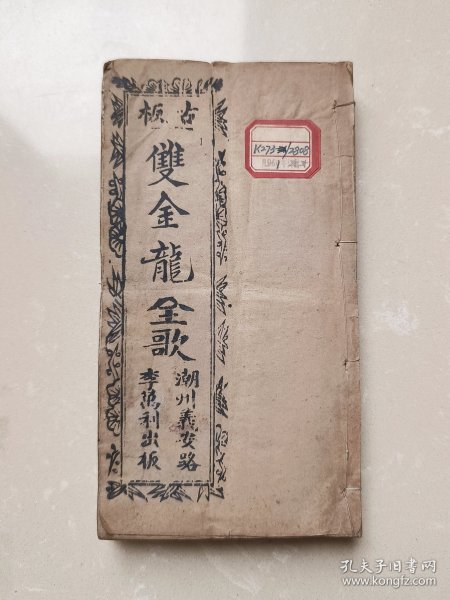 古板
雙金龍全歌
潮州義安路
李萬利出板
K273/2808
孔夫子旧书网
www.kongfz.com